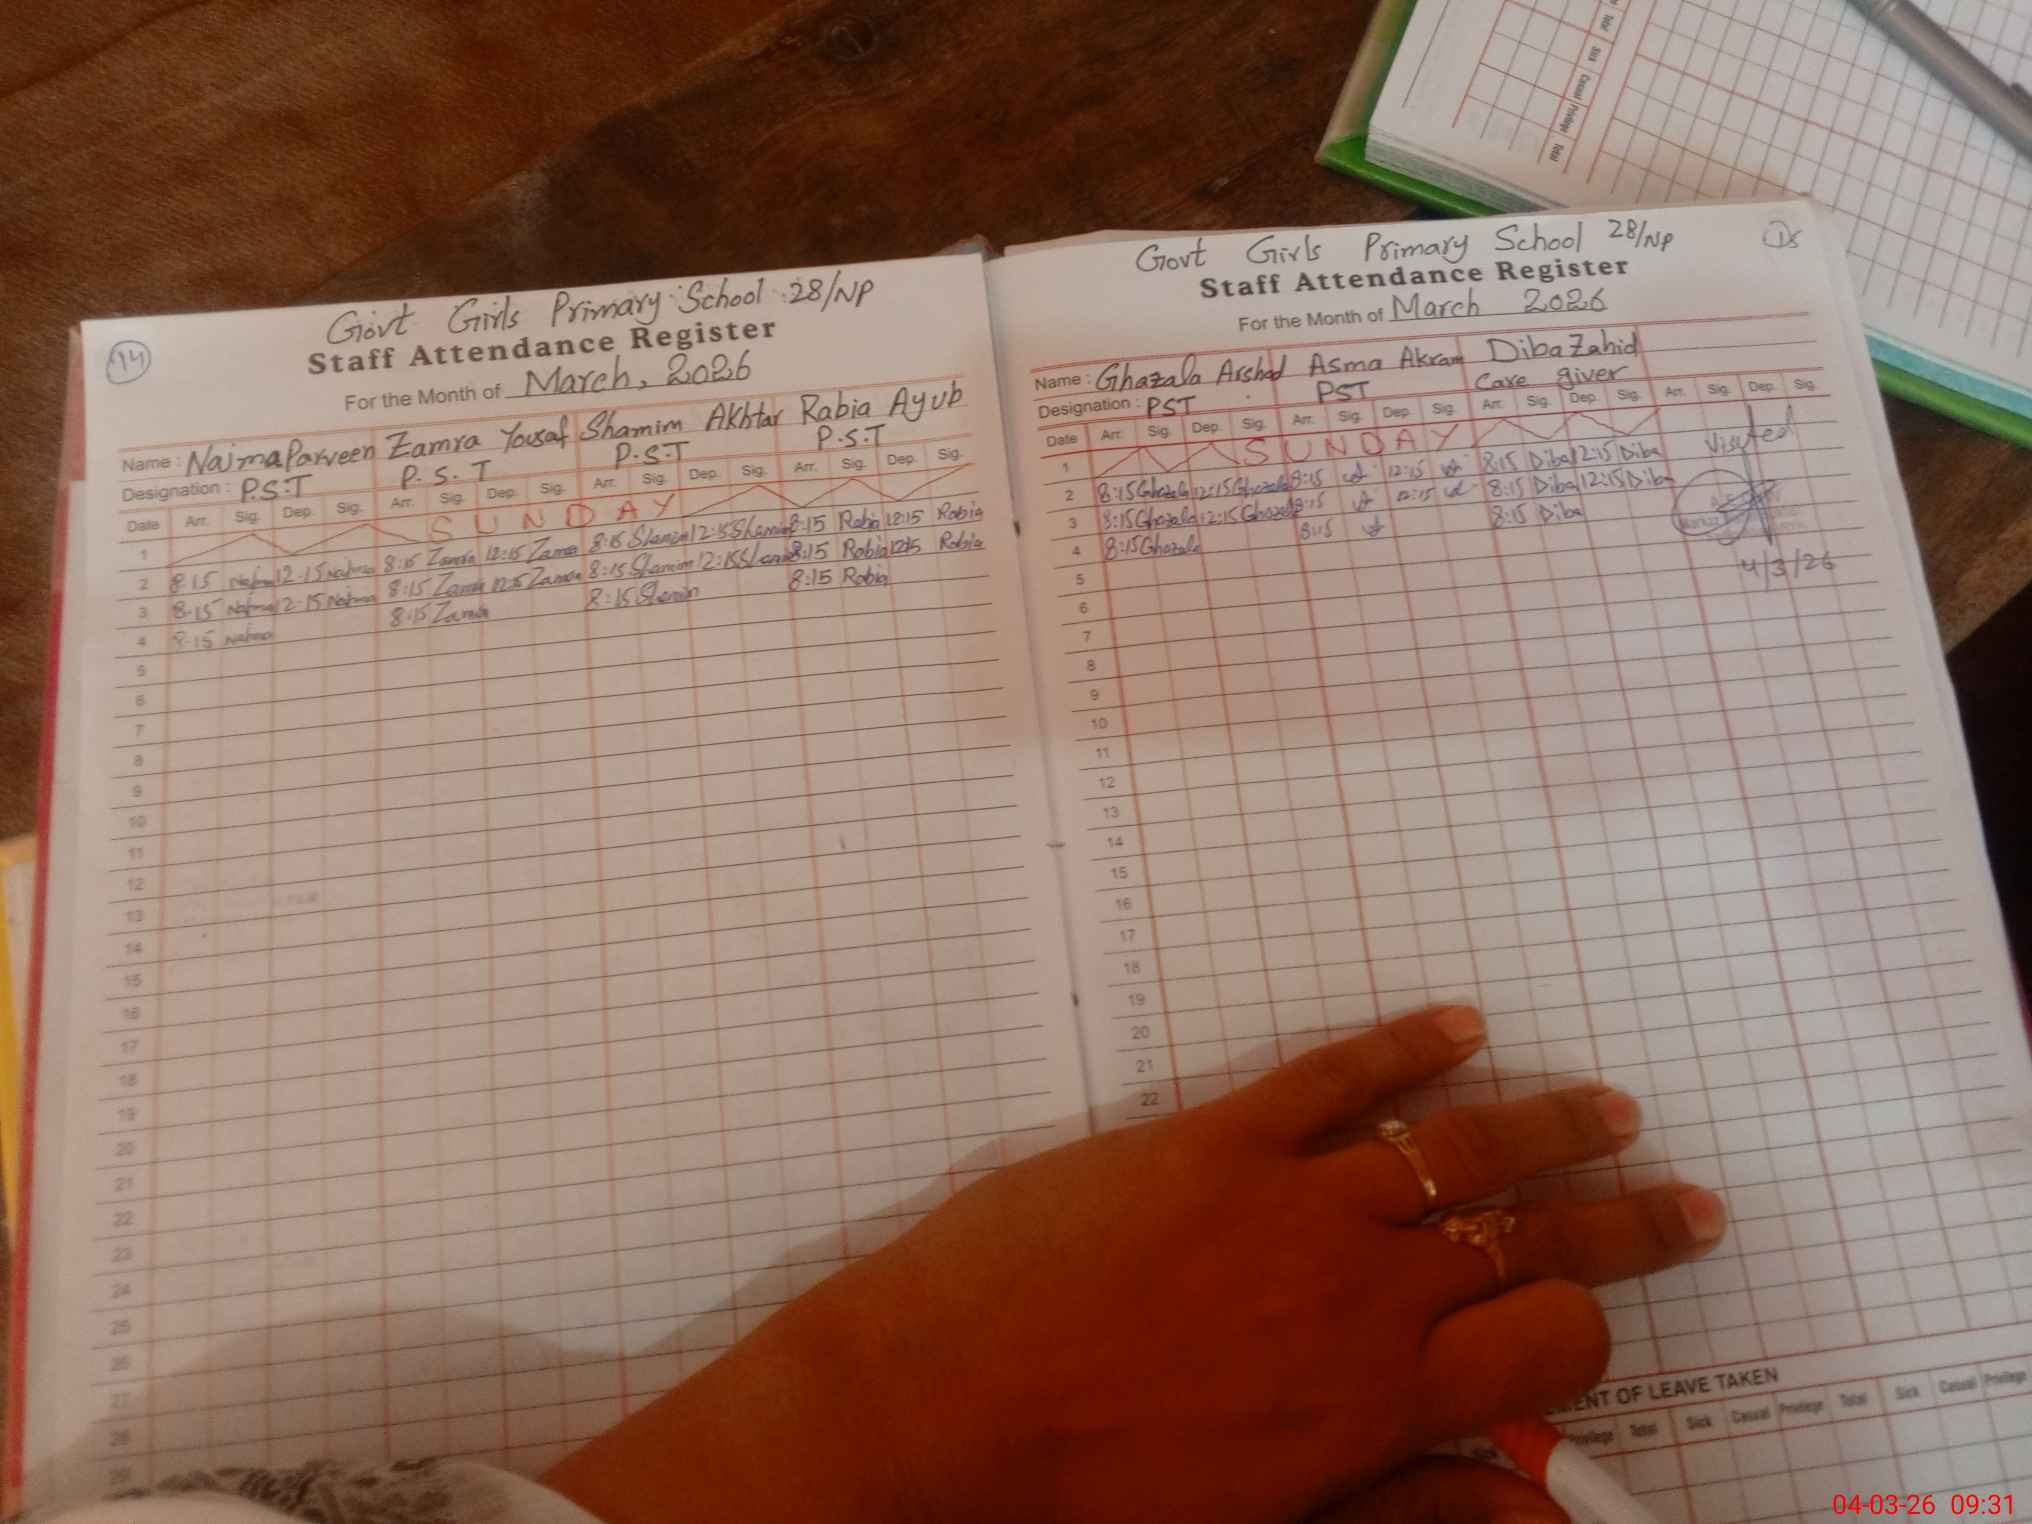 14
Govt Girls Primary School 28/NP
Staff Attendance Register
For the Month of March, 2026
Name : Najma Parveen Zamra Yousaf Shamim Akhtar Rabia Ayub
Designation : P.S.T P.S.T P.S.T P.S.T
Date Arr. Sig. Dep. Sig. Arr. Sig. Dep. Sig. Arr. Sig. Dep. Sig. Arr. Sig. Dep. Sig.
1 SUNDAY
2 8:15 Najma 12:15 Najma 8:15 Zamra 12:15 Zamra 8:15 Shamim 12:15 Shamim 8:15 Rabia 12:15 Rabia
3 8:15 Najma 12:15 Najma 8:15 Zamra 12:15 Zamra 8:15 Shamim 12:15 Shamim 8:15 Rabia 12:15 Rabia
4 8:15 Najma 8:15 Zamra 8:15 Shamim 8:15 Rabia
5
6
7
8
9
10
11
12
13
14
15
16
17
18
19
20
21
22
23
24
25
26
27
28
29
Govt Girls Primary School 28/NP
15
Staff Attendance Register
For the Month of March 2026
Name : Ghazala Arshad Asma Akram Diba Zahid
Designation : PST PST Care giver
Date Arr. Sig. Dep. Sig. Arr. Sig. Dep. Sig. Arr. Sig. Dep. Sig. Arr. Sig. Dep. Sig.
1 SUNDAY
Visited
2 8:15 Ghazala 12:15 Ghazala 8:15 12:15 8:15 Diba 12:15 Diba
3 8:15 Ghazala 12:15 Ghazala 8:15 12:15 8:15 Diba 12:15 Diba
4 8:15 Ghazala 8:15 8:15 Diba
4/3/26
5
6
7
8
9
10
11
12
13
14
15
16
17
18
19
20
21
22
MENT OF LEAVE TAKEN
Privilege Total Sick Casual Privilege Total Sick Casual Privilege
Total Sick Casual Privilege Total
04-03-26 09:31